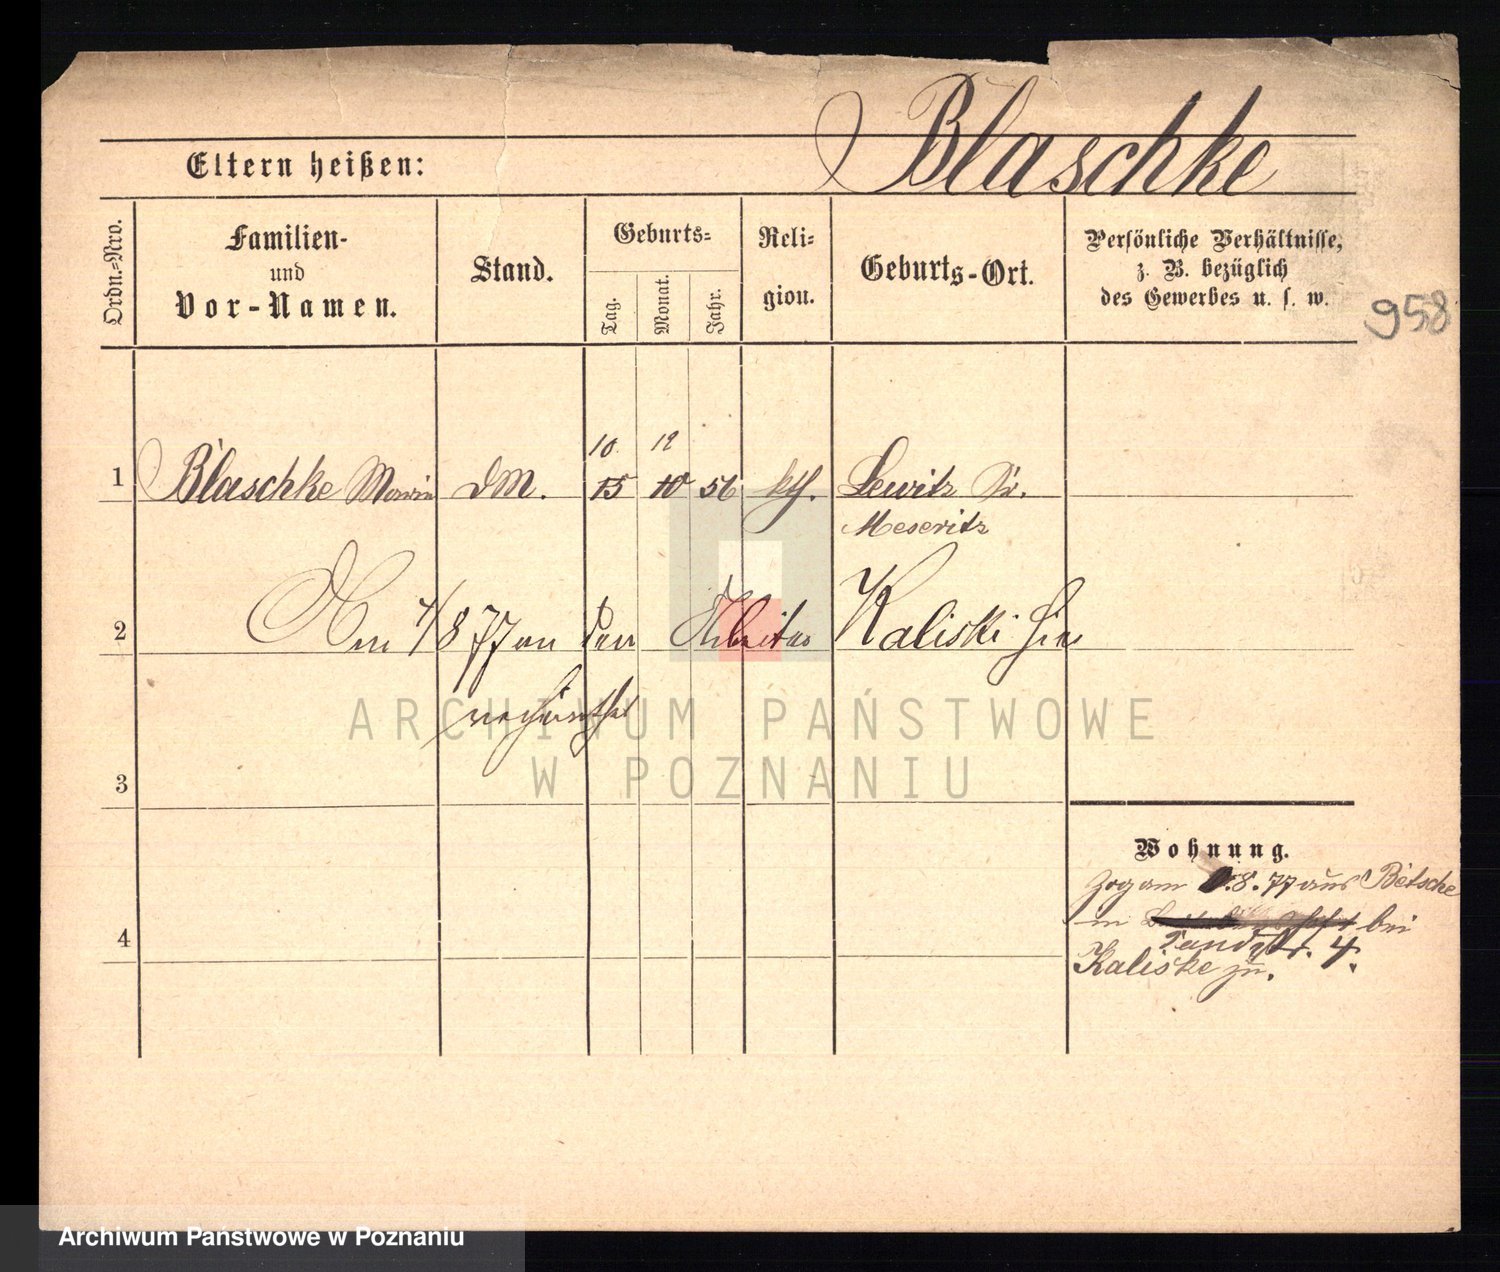 Blaschke
Eltern heißen:
Ordn.-Nro.
Familien-
und
Vor-Namen.
Stand.
Geburts-
Tag.
Monat.
Jahr.
Reli-
gion.
Geburts-Ort.
Persönliche Verhältnisse,
z. B. bezüglich
des Gewerbes u. s. w.
958
10 12
1 Blaschke Marie DM. 15 10 56 kth. Lewitz Kr.
Meseritz
2 Am 7/8 77 an den Arbeiter Kaliski hier
verheirathet
ARCHIWUM PAŃSTWOWE
W POZNANIU
3
Wohnung.
Zog am .8.77 aus Betsche
in bei
Sandstr. 4.
4
Kaliske zu.
Archiwum Państwowe w Poznaniu